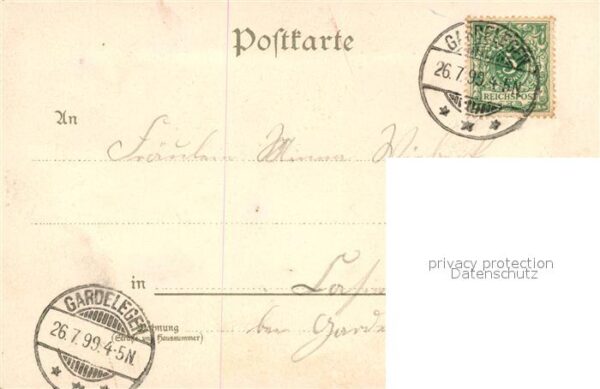 Postkarte
GARDELEGEN
26.7.99.4-5N.
5
REICHSPOST
An
Fräulein Minna
privacy protection
Datenschutz
in
bei Garde
GARDELEGEN
26.7.99.4-5N.
Wohnung
(Straße und Hausnummer)